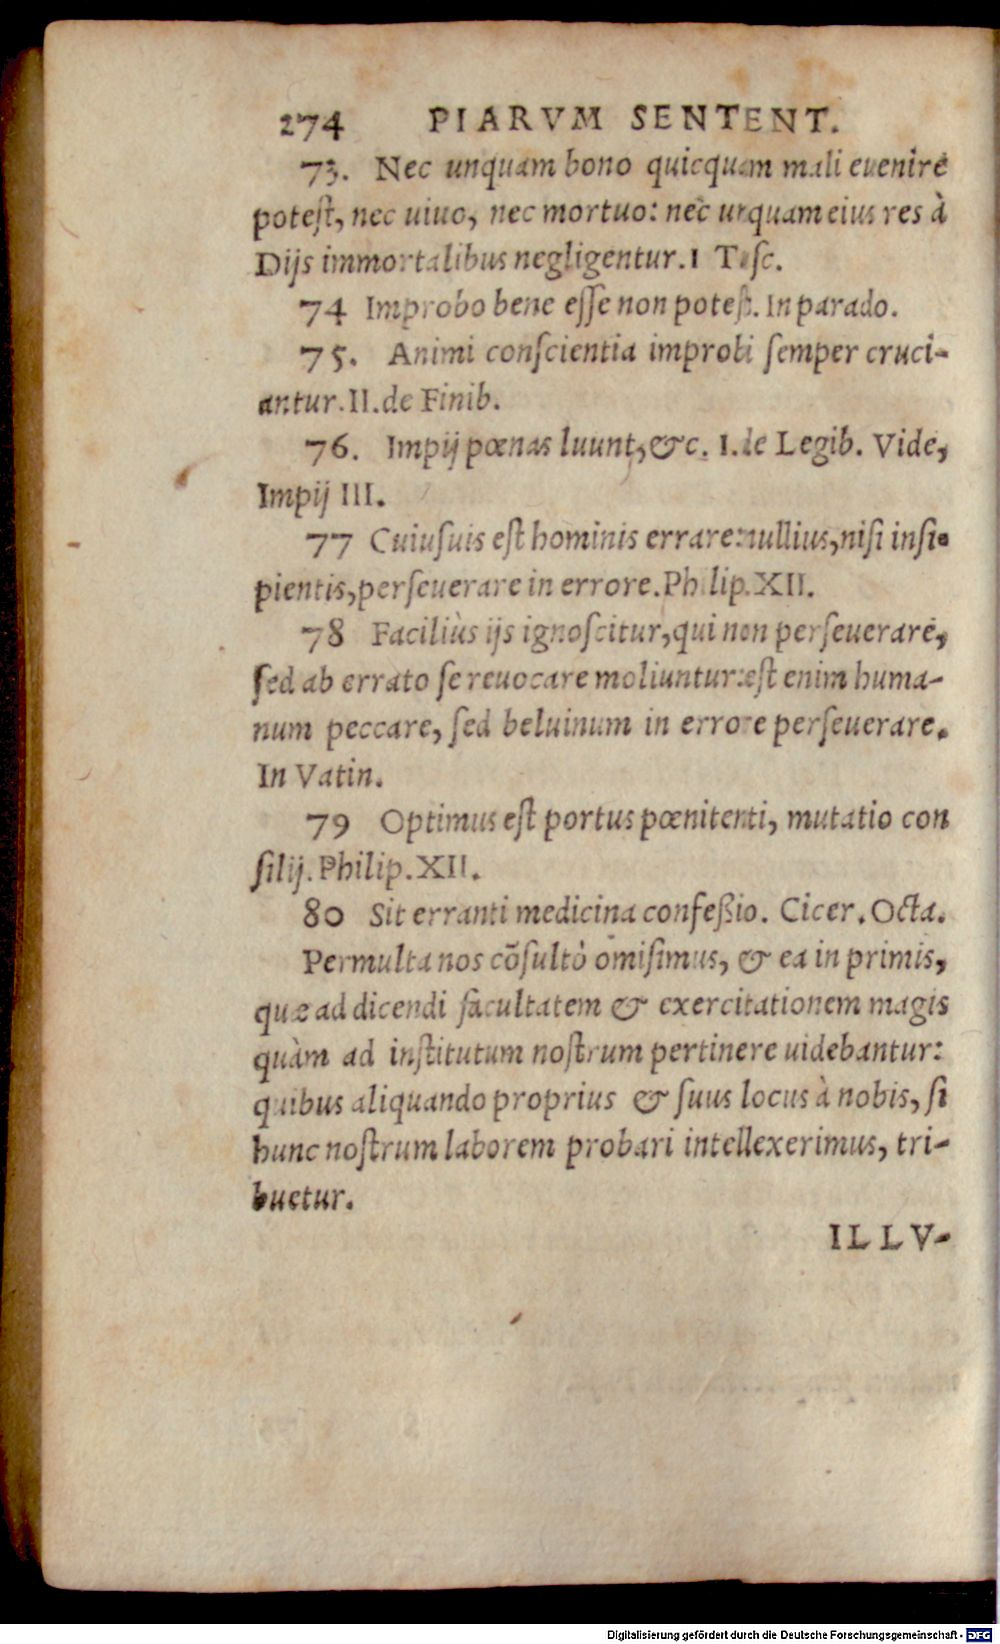 274 PIARVM SENTENT.
73. Nec unquam bono quicquam mali euenire
potest, nec uiuo, nec mortuo: nec unquam eius res à
Dijs immortalibus negligentur. I Tusc.
74 Improbo bene esse non potest. In parado.
75. Animi conscientia improbi semper cruci-
antur. II. de Finib.
76. Impij pœnas luunt, &c. I. de Legib. Vide,
Impij III.
77 Cuiusuis est hominis errare: nullius, nisi insi-
pientis, perseuerare in errore. Philip. XII.
78 Faciliùs ijs ignoscitur, qui non perseuerare,
sed ab errato se reuocare moliuntur: est enim huma-
num peccare, sed beluinum in errore perseuerare.
In Vatin.
79 Optimus est portus pœnitenti, mutatio con
silij. Philip. XII.
80 Sit erranti medicina confeßio. Cicer. Octa.
Permulta nos cōsultò omisimus, & ea in primis,
quæ ad dicendi facultatem & exercitationem magis
quàm ad institutum nostrum pertinere uidebantur:
quibus aliquando proprius & suus locus à nobis, si
hunc nostrum laborem probari intellexerimus, tri-
buetur.
ILLV-
Digitalisierung gefördert durch die Deutsche Forschungsgemeinschaft - DFG